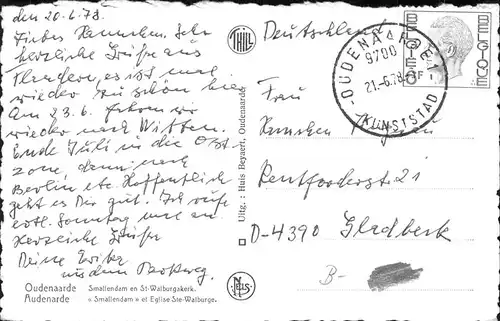 den 20.6.78.
Liebes Hannchen, Sehr
herzliche Grüße aus
Flandern, es ist mal
wieder zu schön hier
Am 23.6. fahren wir
wieder nach Witten.
Ende Juli in die Ost
zone, dann nach
Berlin etc. Hoffentlich
geht es Dir gut. Ich rufe
evtl. Sonntag mal an
Herzliche Grüße
Deine
und dem
Oudenaarde Smallendam en St-Walburgakerk.
Audenarde « Smallendam » et Eglise Ste-Walburge.
THILL
Uitg. : Huis Beyaert, Oudenaarde
NELS
Deutschland
OUDENAARDE 1
9700
21-6.78
KUNSTSTAD
BELGIE BELGIQUE
Frau
Hannchen
Rentforderstr. 21
D-4390 Gladbeck
B-